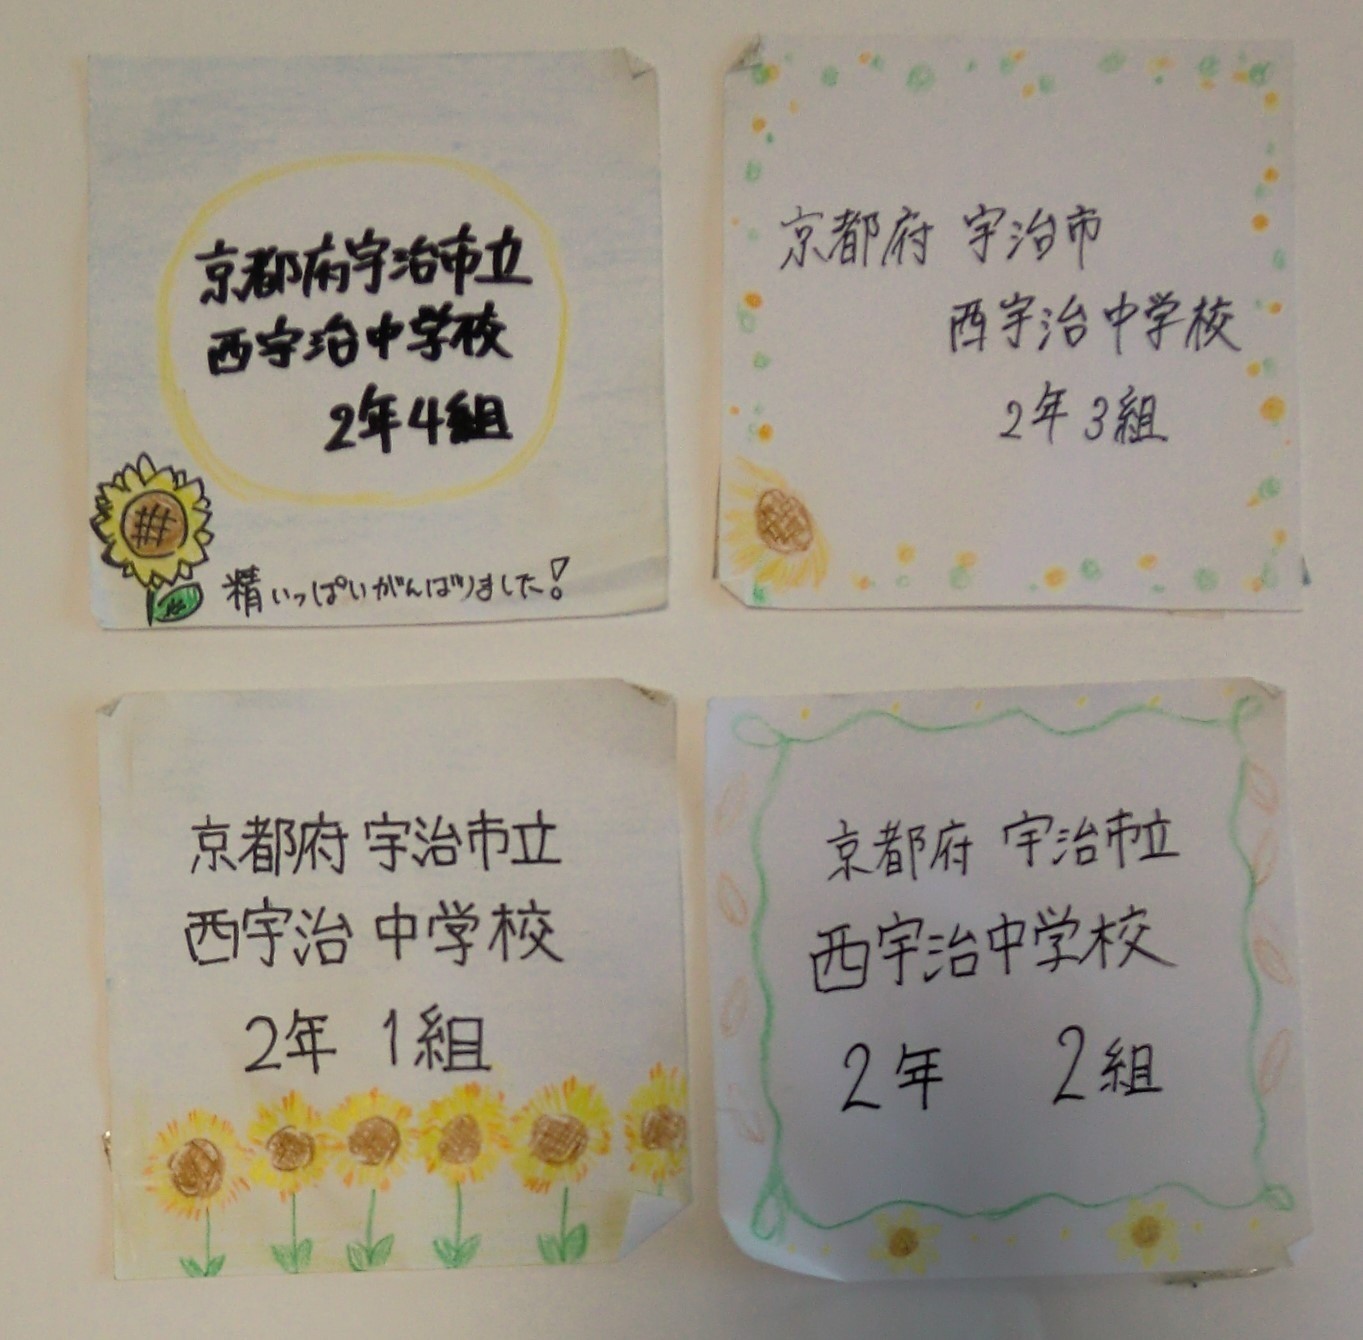 京都府宇治市立
西宇治中学校
2年4組
精いっぱいがんばりました!
京都府 宇治市
西宇治中学校
2年3組
京都府 宇治市立
西宇治 中学校
2年 1組
京都府 宇治市立
西宇治中学校
2年 2組